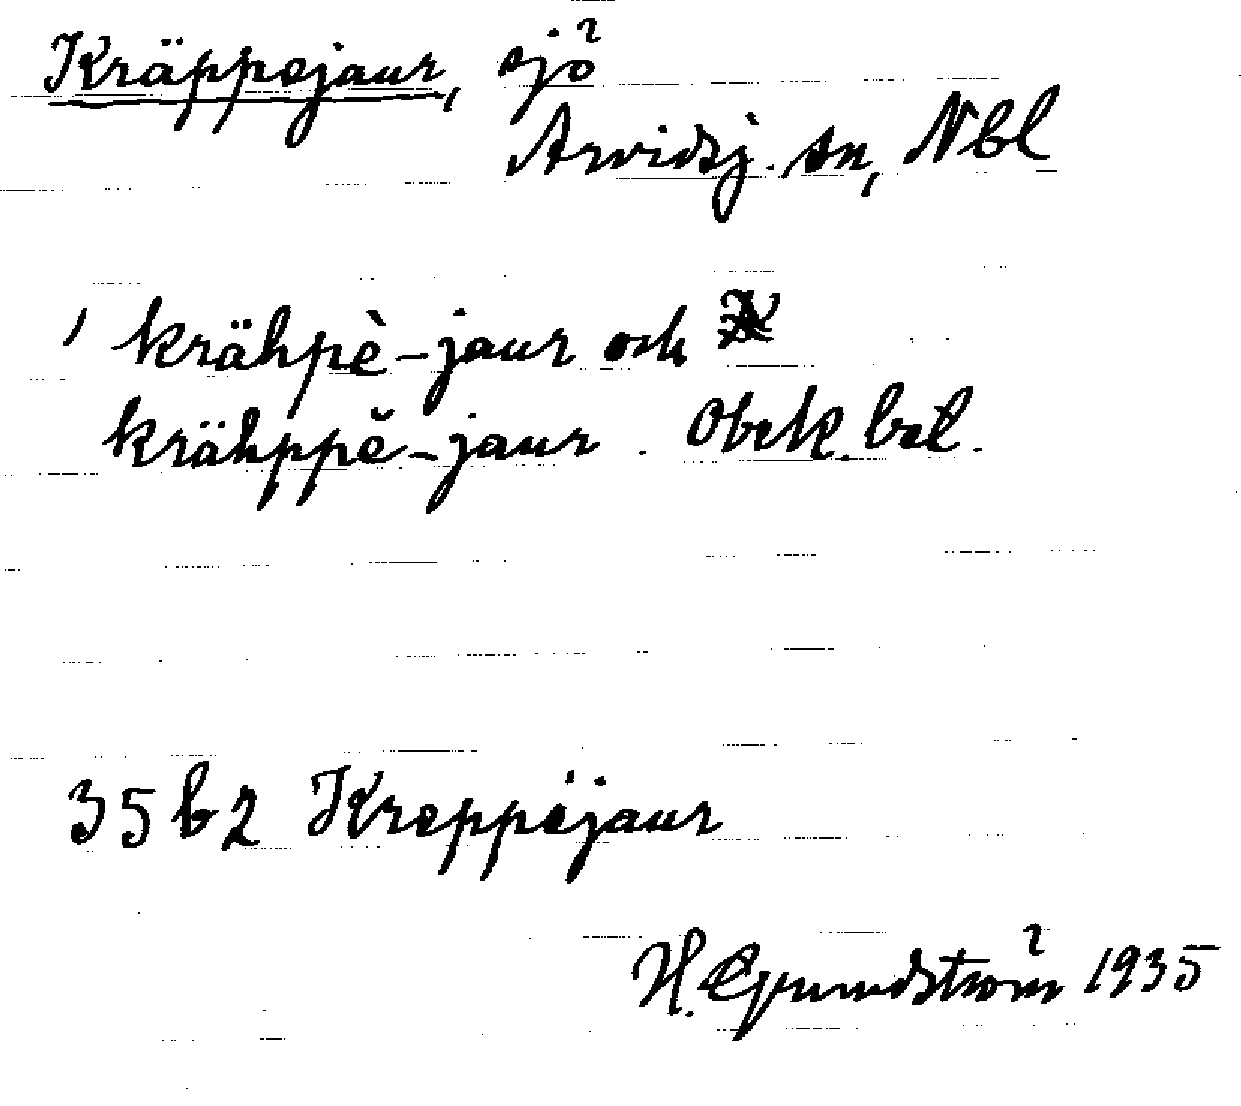 Kräppejaur, sjö
Arvidsj. sn, Nbl
' krähpè-jaur och
krähppĕ-jaur. Obek. bet.
35 b 2 Kreppejaur
H. Grundström 1935